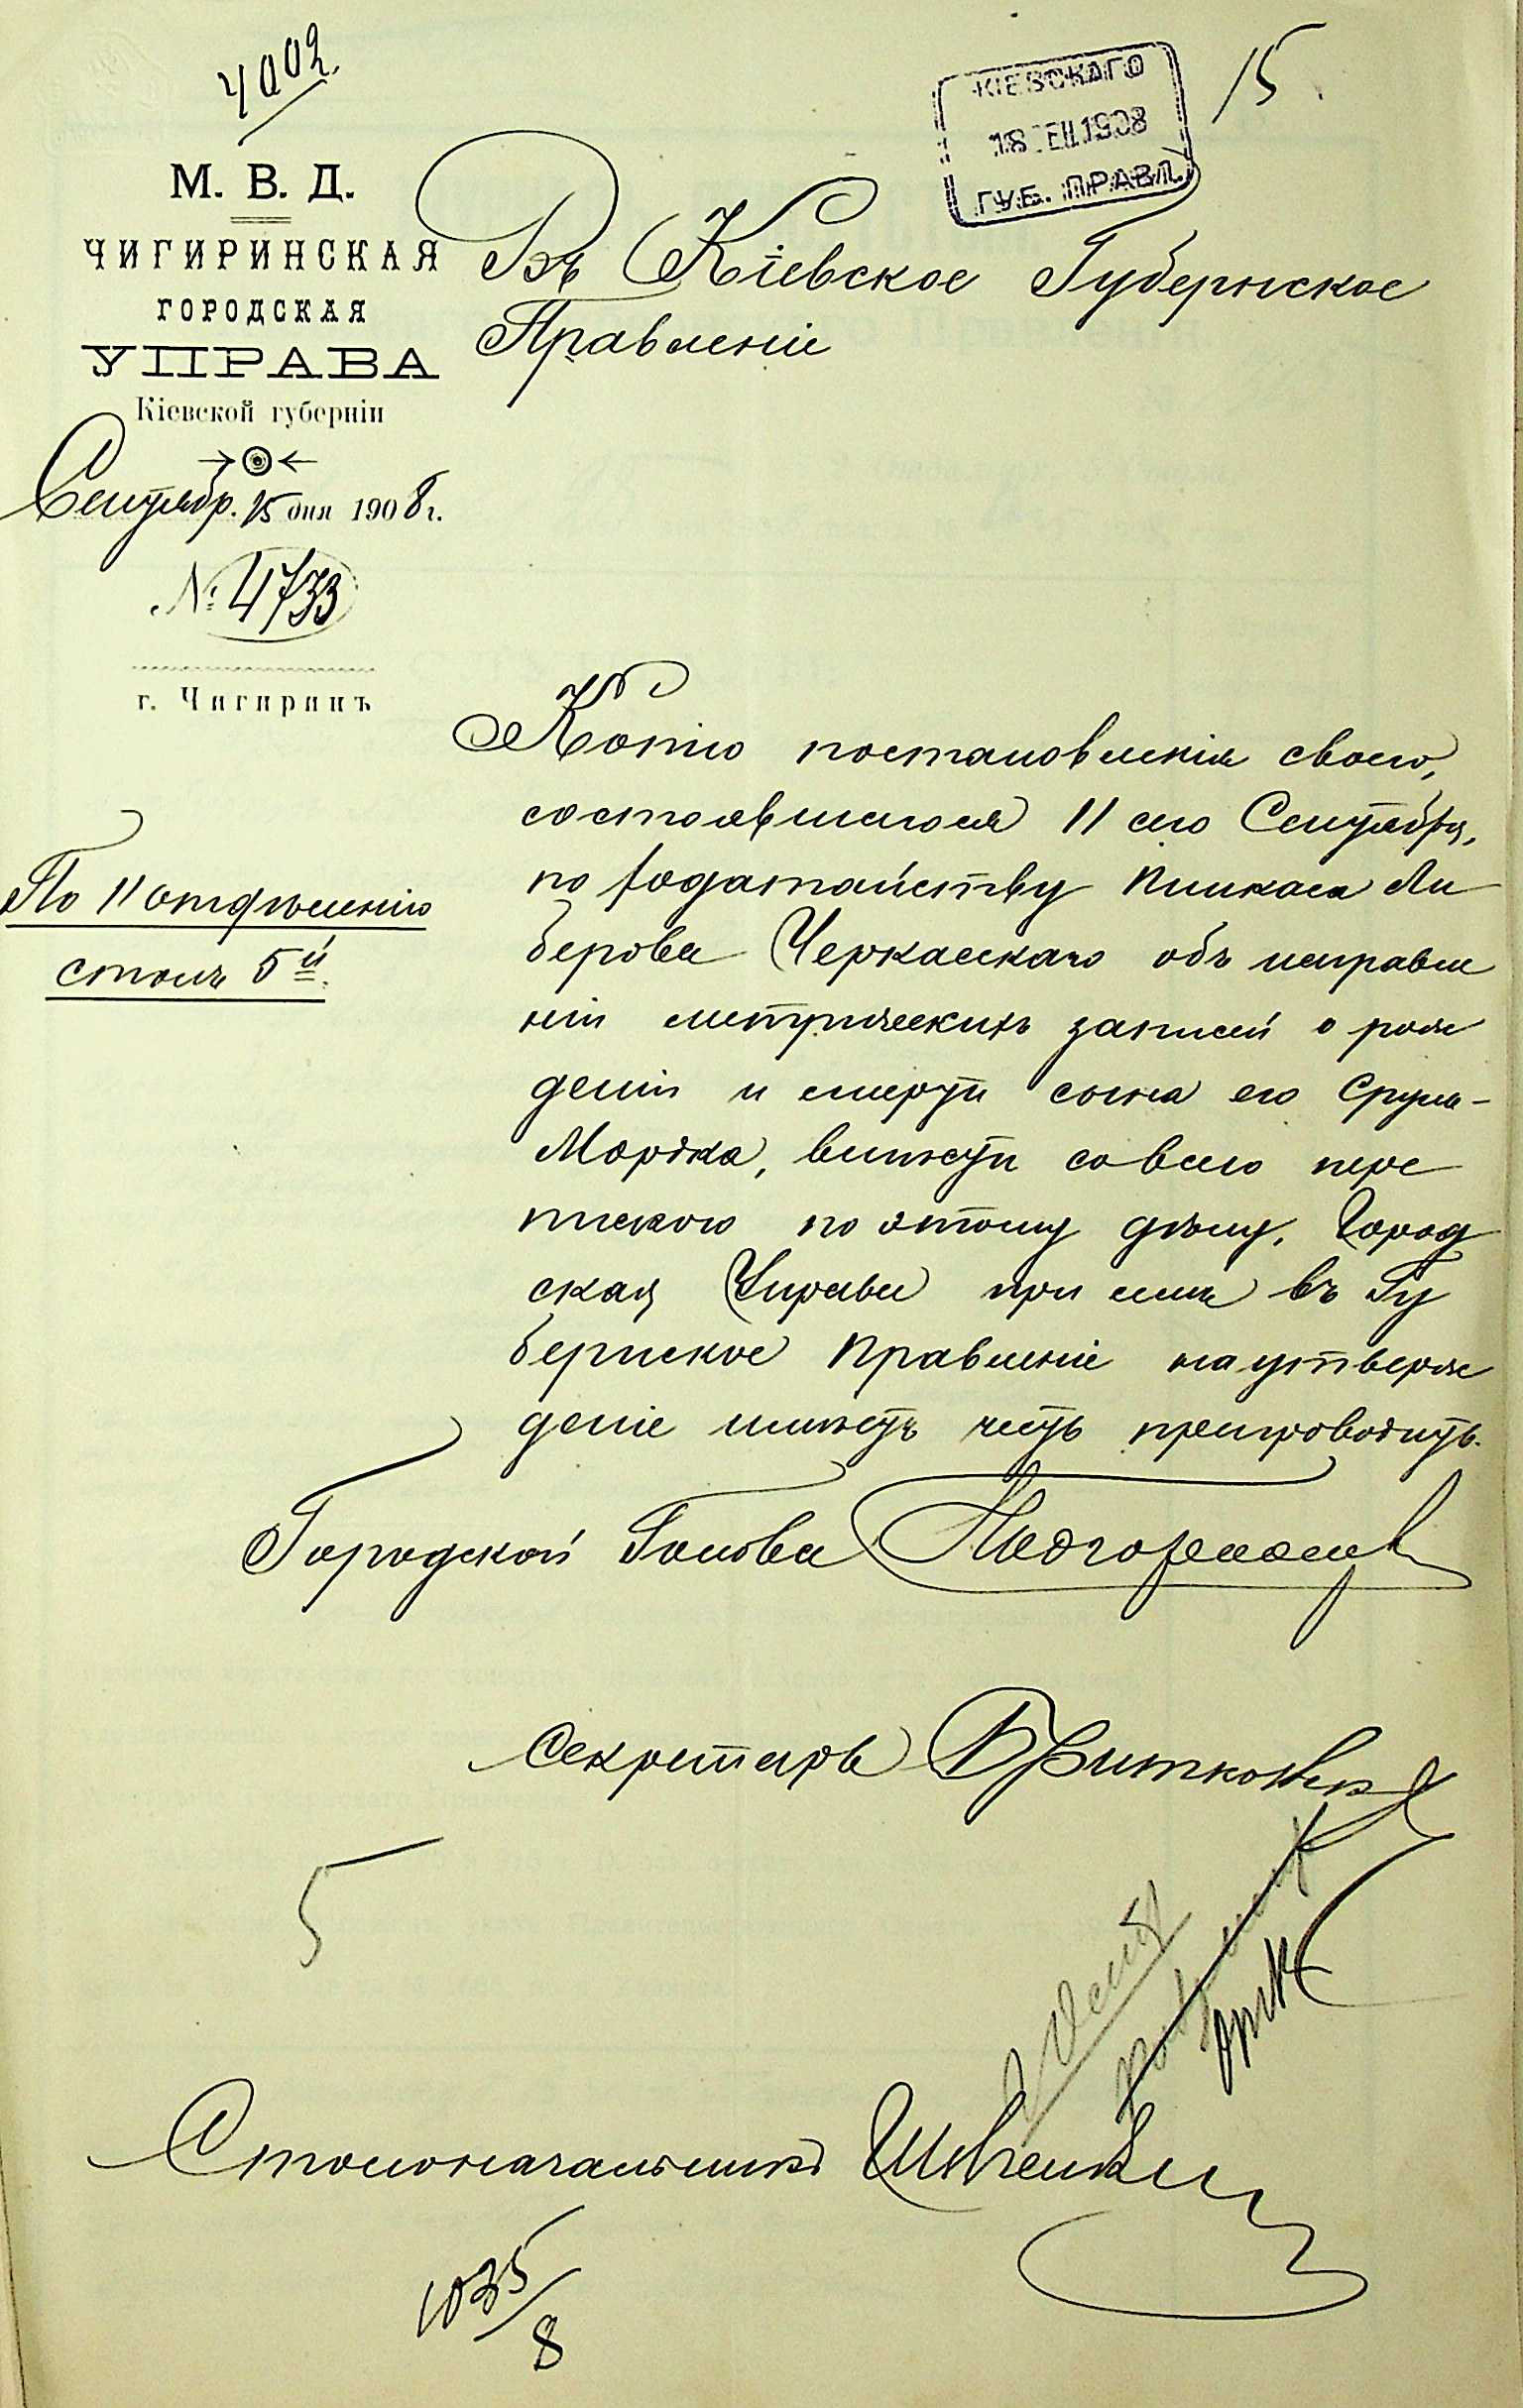 4002.
15
КІЕВСКАГО
18 СЕН.1908
ГУБ. ПРАВЛ.
М. В. Д.
ЧИГИРИНСКАЯ
ГОРОДСКАЯ
УПРАВА
Кіевской губерніи
Сентябр. 15 дня 1908 г.
№ 4733
г. Чигиринъ
По II отдѣленію
столъ 5й.
Въ Кіевское Губернское
Правленіе
Копію постановленія своего,
состоявшагося 11 сего Сентября,
по ходатайству Пинкаса Ли
берова Черкасскаго объ исправле
ніи метрическихъ записей о рож
деніи и смерти сына его Срула-
Мордка, вмѣстѣ со всею пере
пискою по этому дѣлу, Город
ская Управа при семъ въ Гу
бернское Правленіе на утверж
деніе имѣетъ честь препроводить.
Городской Голова
Секретарь
5
Столоначальникъ
1035/8